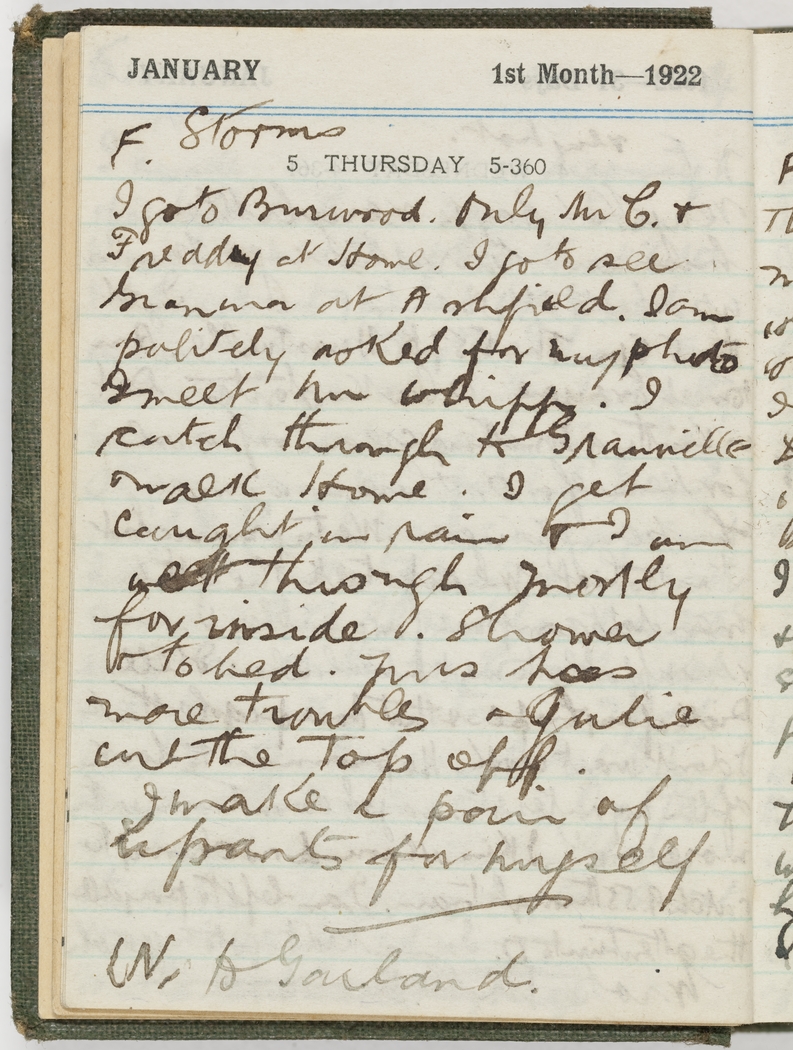 JANUARY 1st Month—1922
F. Storms
5 THURSDAY 5-360
I go to Burwood. Only Mr C. +
Freddy at Home. I go to see
Gramma at Ashfield. I am
politely asked for my photo
I meet Mr Whipp. I
catch through to Granville
walk Home. I get
caught in rain + I am
wet through mostly
for inside. Shower
+ to bed. Puss has
more troubles + Julie
cut the top off.
I make a pair of
for myself
W. H Garland.